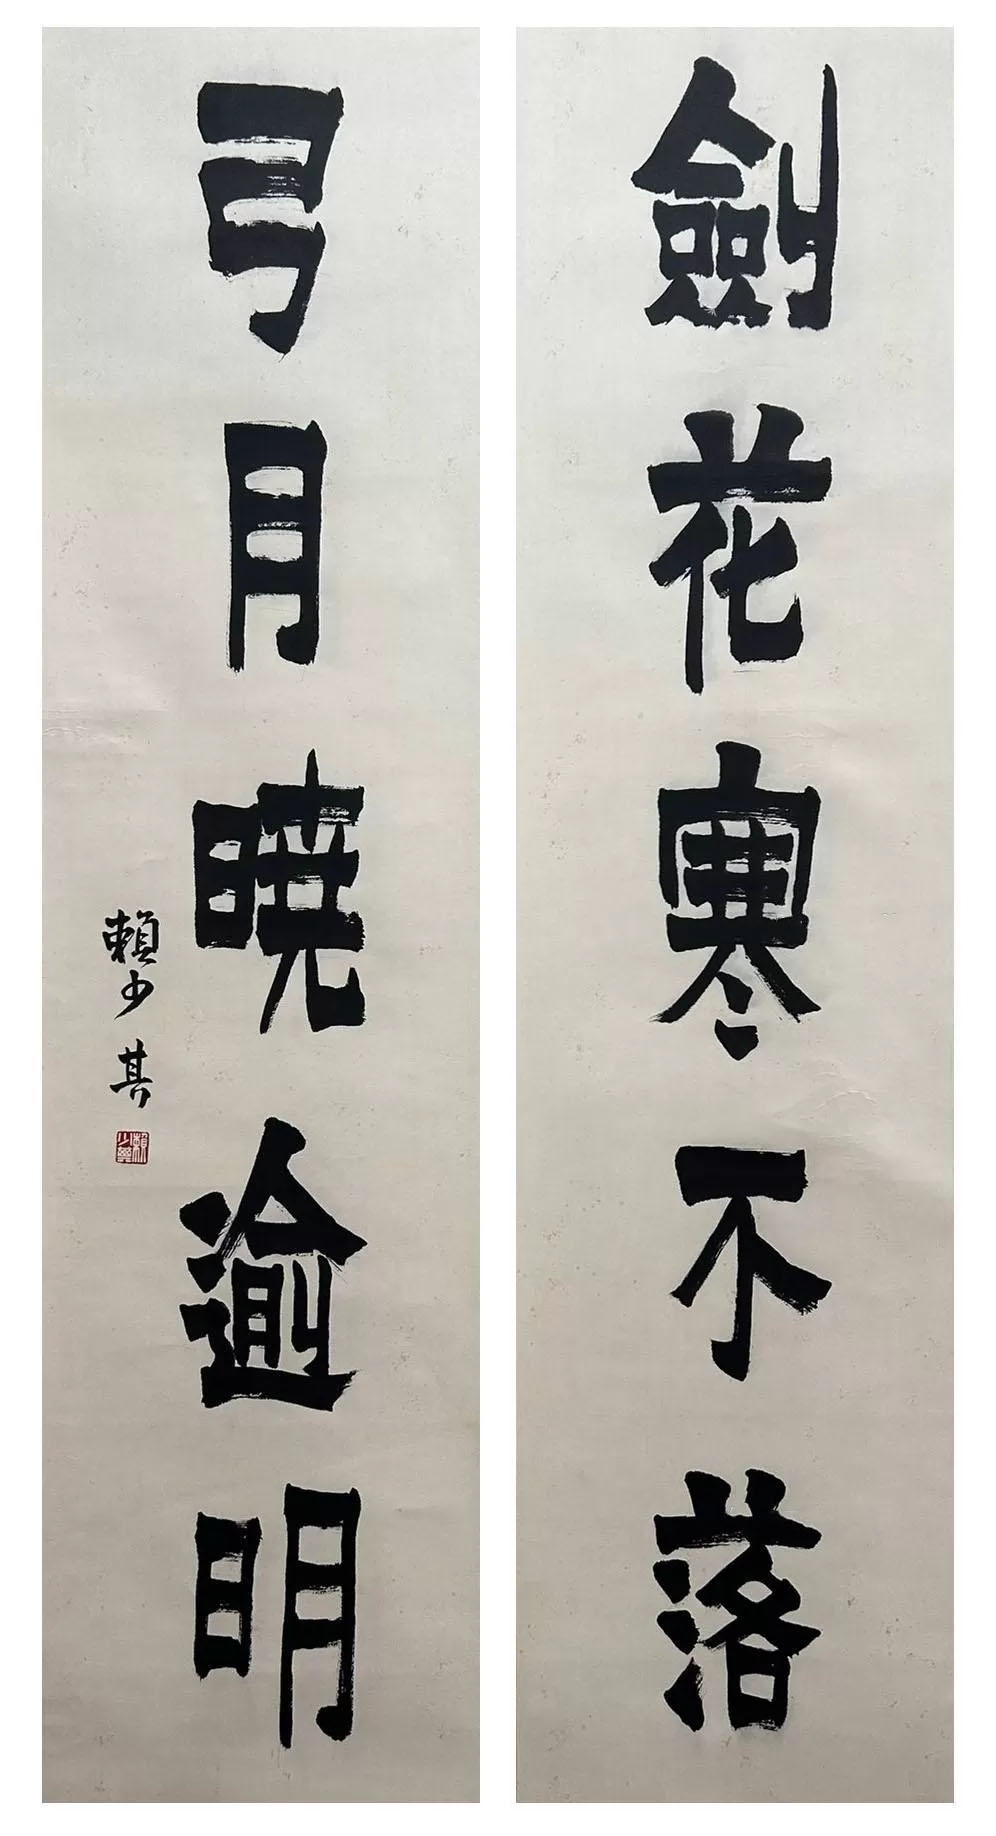 劍花寒不落
弓月曉逾明
賴少其
賴少其